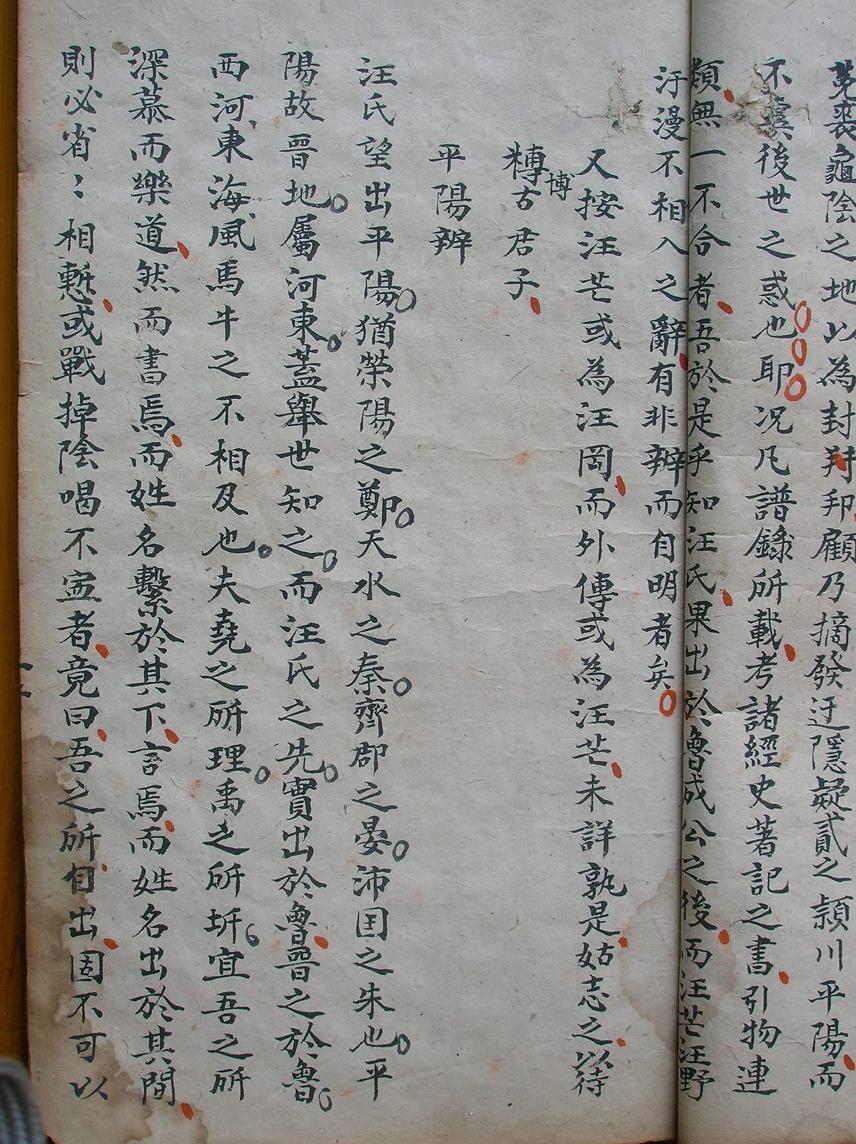 菟裘龜陰之地以為封邦顧乃摘發迂隱疑貳之潁川平陽而
不冀後世之惑也耶况凡譜錄所載考諸經史著記之書引物連
類無一不合者吾於是乎知汪氏果出於魯成公之後而汪芒汪野
汙漫不相入之辭有非辨而自明者矣
又按汪芒或為汪罔而外傳或為汪芒未詳孰是姑志之以待
博古君子
博
平陽辨
汪氏望出平陽猶滎陽之鄭天水之秦齊郡之晏沛国之朱也平
陽故晉地屬河東蓋舉世知之而汪氏之先實出於魯晉之於魯
西河東海風馬牛之不相及也夫堯之所理禹之所圻宜吾之所
深慕而樂道然而書焉而姓名繫於其下言焉而姓名出於其間
則必省：相慙或戰掉陰喝不寍者竟曰吾之所自出固不可以